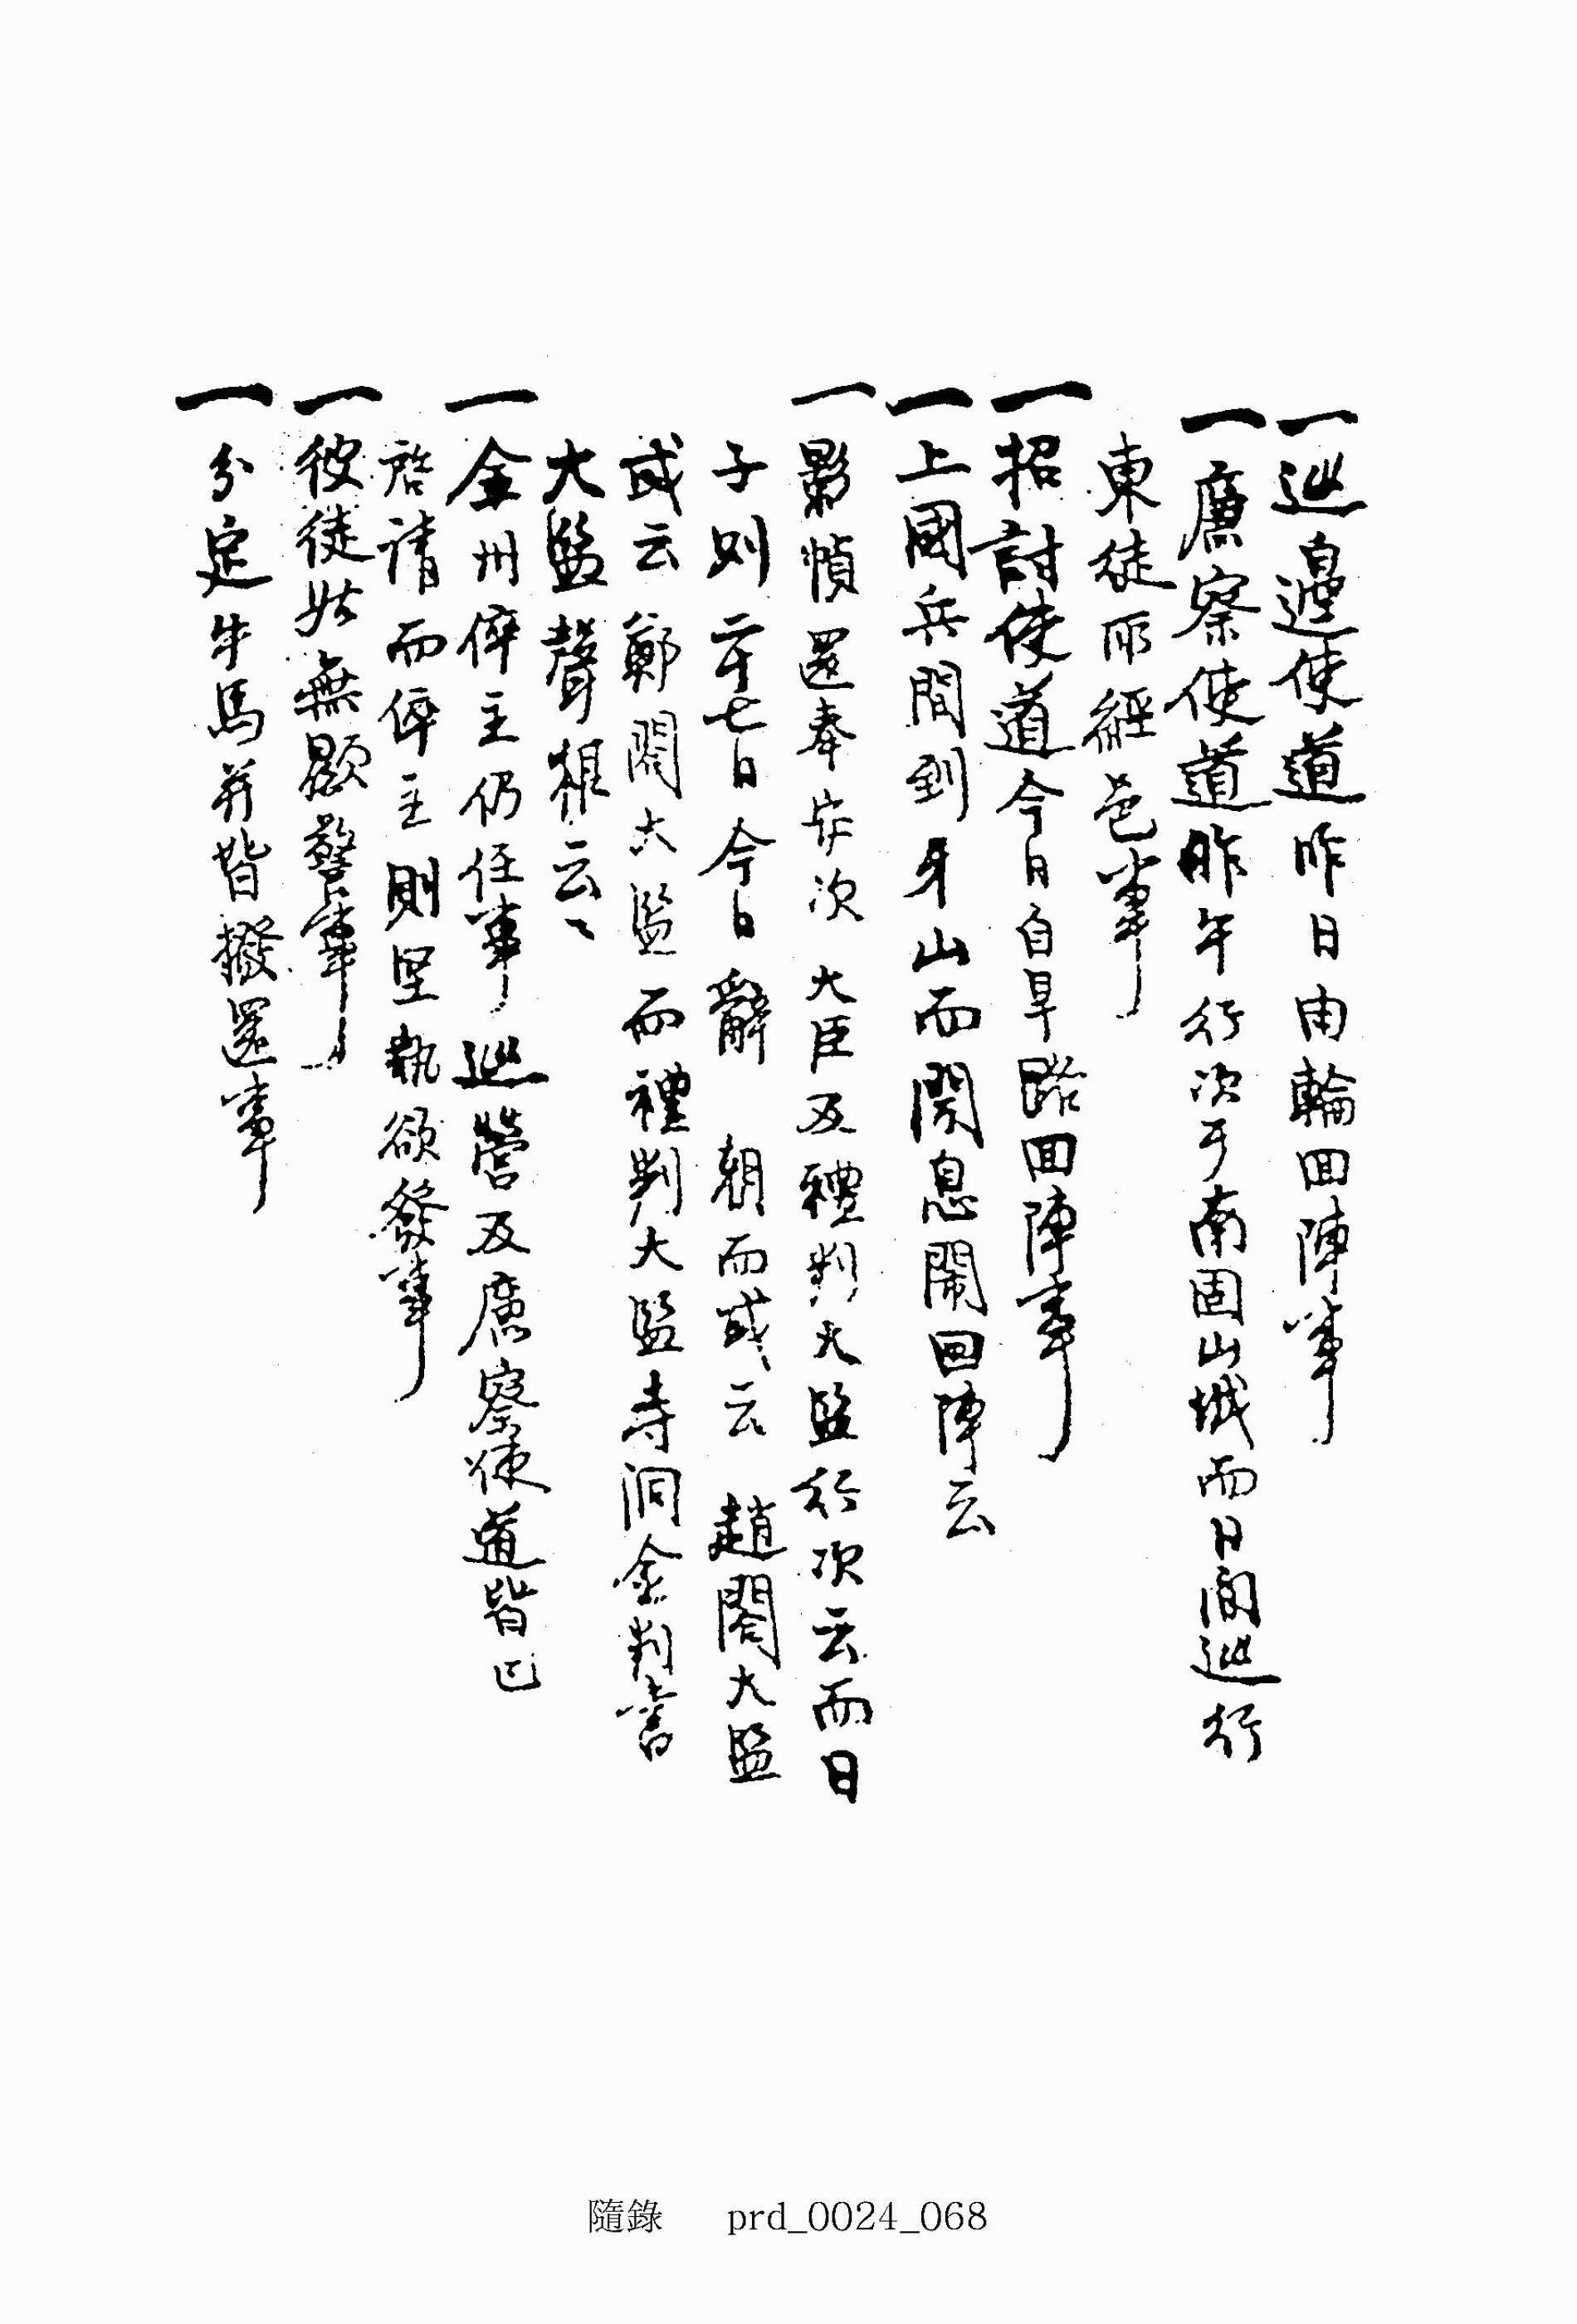 一巡邊使道昨日由輪回陣事
一廉察使道昨午行次于南固山城而日間巡行
東徒所經邑事
一招討使道今日自旱路回陣事
一上國兵間到牙山而聞息鬧回陣云
一影幀還奉安次大臣及禮判大監行次云而日
子則二十七日今日辭 朝而或云 趙閤大監
或云鄭閤大監而禮判大監寺洞金判書
大監聲稚云云
一金州倅主仍任事巡營及廉察使道皆已
啓請而倅主則堅執欲發事
一彼徒姑無顯警事
一分定牛馬幷皆撥還事
隨錄 prd_0024_068